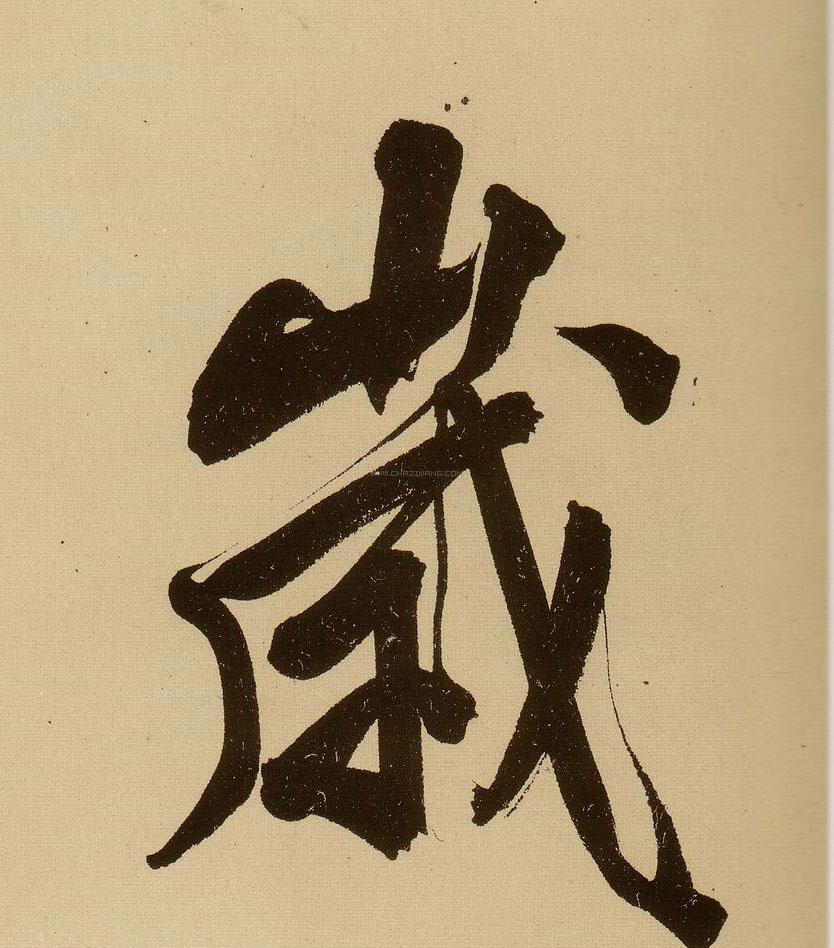 歳
WWW.CHAZIWANG.COM